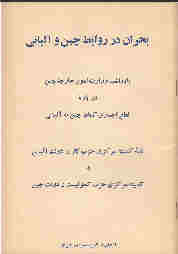 بحران در روابط چین و آلبانی
یادداشت وزارت امور خارجه چین
در باره
قطع کمکهای چین به آلبانی
نامهٔ کمیته مرکزی حزب کار و دولت آلبانی
به
کمیته مرکزی حزب کمونیست و دولت چین